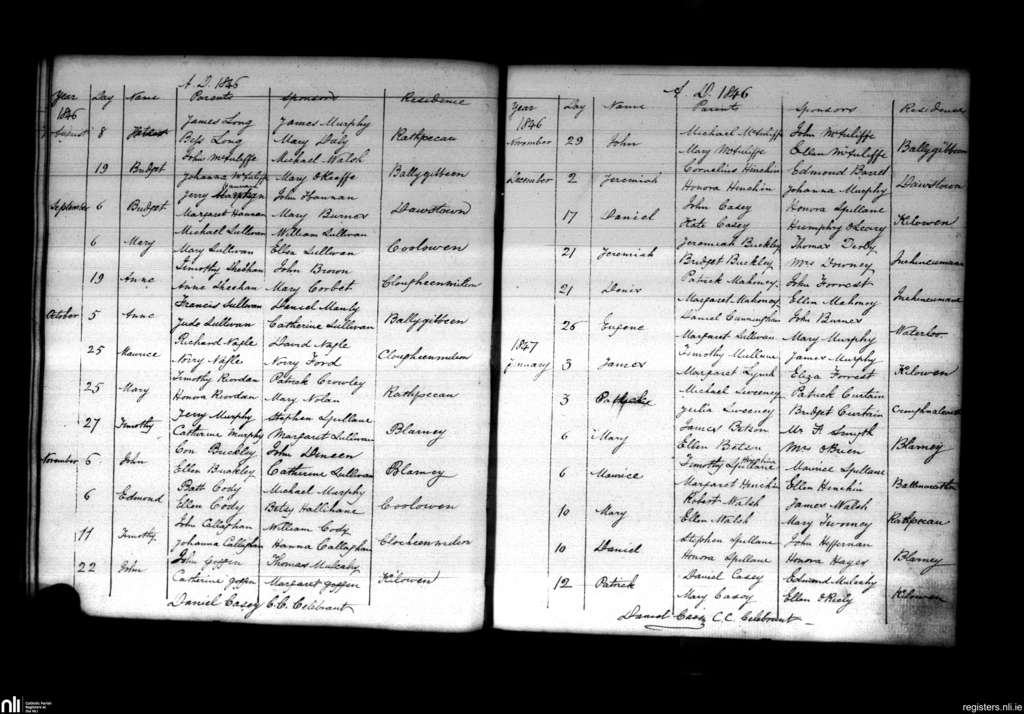 A. D. 1846
Year Day Name Parents Sponsors Residence
1846
August 8 James Long James Murphy Rathpecan
Bess Long Mary Daly
19 Bridget John McAuliffe Michael Walsh Ballygibteen
Johanna McAuliffe Mary OKeeffe
September 6 Bridget Jerry Hannan John Hannan Dawstown
Margaret Hannan Mary Burnes
6 Mary Michael Sullivan William Sullivan Coolowen
Mary Sullivan Ellen Sullivan
19 Anne Timothy Sheehan John Brown Clougheenmilon
Anne Sheehan Mary Corbet
October 5 Anne Francis Sullivan Daniel Manly Ballygibteen
Jude Sullivan Catherine Sullivan
25 Maurice Richard Nagle David Nagle Clogheenmilon
Norry Nagle Norry Ford
25 Mary Timothy Riordan Patrick Crowley Rathpecan
Honora Riordan Mary Nolan
27 Timothy Jerry Murphy Stephen Spillane Blarney
Catherine Murphy Margaret Sullivan
November 6 John Con Buckley John Dineen Blarney
Ellen Buckley Catherine Sullivan
6 Edmond Patt Cody Michael Murphy Coolowen
Ellen Cody Betsy Hallihane
11 Timothy John Callaghan William Cody Clocheenmilon
Johanna Callaghan Hanna Callaghan
22 John John Goggen Thomas Mulcahy Kilowen
Catherine Goggen Margaret Goggen
Daniel Casey C.C. Celebrant
A. D. 1846
Year Day Name Parents Sponsors Residence
1846
November 29 John Michael McAuliffe John McAuliffe Ballygibteen
Mary McAuliffe Ellen McAuliffe
December 2 Jeremiah Cornelius Hinchin Edmond Barret Dawstown
Honora Hinchin Johanna Murphy
17 Daniel John Casey Honora Spillane Kilowen
Kate Casey Humphry OLeary
21 Jeremiah Jeremiah Buckley Thomas Derby
Bridget Buckley Mrs Downey
21 Denis Patrick Mahoney John Forrest
Margaret Mahoney Ellen Mahoney
26 Eugene Daniel Cunningham John Burnes Waterloo
Margaret Sullivan Mary Murphy
1847
January 3 James Timothy Mullane James Murphy Kilowen
Margaret Lynch Eliza Forrest
3 Michael Sweeney Patrick Curtain
Julia Sweeney Bridget Curtain
6 Mary James Betson Mr Fr Smyth Blarney
Ellen Betson Mrs OBrien
6 Maurice Timothy Spillane Maurice Spillane
Margaret Hinchin Ellen Hinchin
10 Mary Robert Walsh James Walsh Rathpecan
Ellen Walsh Mary Twomey
10 Daniel Stephen Spillane John Heffernan Blarney
Honora Spillane Honora Hayes
12 Patrick Daniel Casey Edmond Mulcahy Kilowen
Mary Casey Ellen OKiely
Daniel Casey C.C. Celebrant
nli Catholic Parish Registers at the NLI
registers.nli.ie